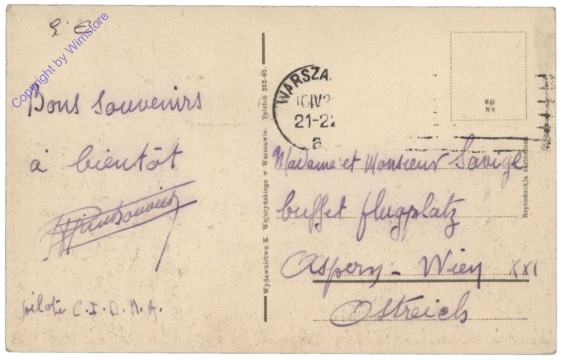 Copyright by Winstore
Bons souvenirs
à bientôt
pilote C.I.D.N.A.
Wydawnictwo K. Wojutyńskiego w Warszawie. Telefon
Reprodukcja zabroniona
WARSZA
21-22
Madame et Monsieur Savigl
buffet flugplatz
Aspern - Wien XXI
Ostreich